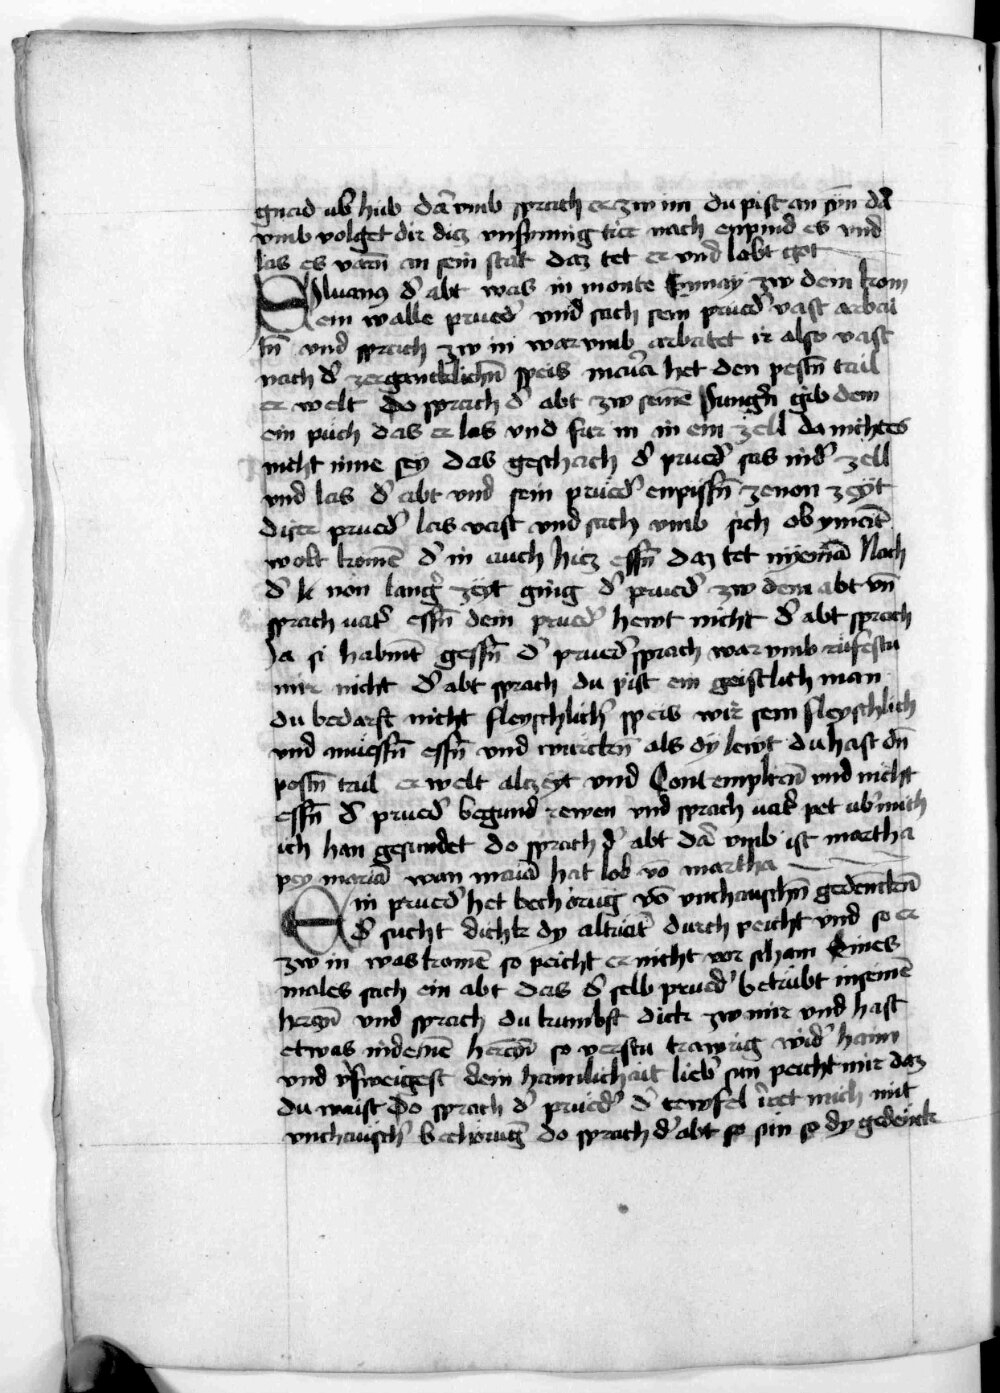 gnad ub̾ hub da᷑ vmb sprach er zw im du pist an syn da᷑
vmb volget dir dicz vnsynnig tier nach enpind es vnd
las es varn̄ an sein stat daz tet er vnd lobt got
Siluanꝰ d᷑ abt was in monte Synay zw dem kom
ein walle prued᷑ vnd sach sein prued᷑ vast arbai
tn̄ vnd sprach zw in war vmb arbaitet ir also vast
nach d᷑ zerganckchlichn̄ speis maria het den pestn̄ tail
er welt Do sprach d᷑ abt zw seinē Jung᷑n gib dem
ein puch das er las vnd fur in in ein zell da nichtes
nicht inne sey das geschach d᷑ prued᷑ sas in d᷑ zell
vnd las d᷑ abt vnd sein prued᷑ enpissn̄ ze non zeyt
diser prued᷑ las vast vnd sach vmb sich ob ymāt
wolt komē d᷑ in auch hiez essn̄ daz tet nyemā Nach
d᷑ non lang᷑ zeyt ging d᷑ prued᷑ zw dem abt vn̄
sprach uat᷑ essn̄ dein prued᷑ hewt nicht d᷑ abt sprach
Ja si habnt gessn̄ d᷑ prued᷑ sprach war vmb rufestu
mir nicht d᷑ abt sprach du pist ein geistlich man
du bedarft nicht fleyschlich᷑ speis wir sein fleyschlich
vnd muessn̄ essn̄ vnd wurckn̄ als dy lewt du hast dn̄
postn̄ tail er welt alczeyt vnd Contemplirn̄ vnd nicht
essn̄ d᷑ prued᷑ begund rewen vnd sprach uat᷑ pet ub᷑ mich
ich han gesundet do sprach d᷑ abt da᷑ vmb ist martha
pey mariā wan mariā hat lob vō martha
Ein prued᷑ het bechorug vō vnchauschn̄ gedenckn̄
d᷑ sucht dickh dy altuat᷑ durch peicht vnd so er
zw in was komē so peicht er nicht vor scham Eines
males sach ein abt das d᷑ selb prued᷑ betrubt in seinē
herczn̄ vnd sprach du kumbst dick zw mir vnd hast
etwas in deinē herczn̄ so verstu trawrig wid᷑ haim
vnd v᷑sweigest dein haimlichait lieb᷑ sun peicht mir daz
du waist Do sprach d᷑ prued᷑ d᷑ tewfel irret mich mit
vnchausch᷑ bechoruḡ do sprach d᷑ abt so sun so dy gedenck